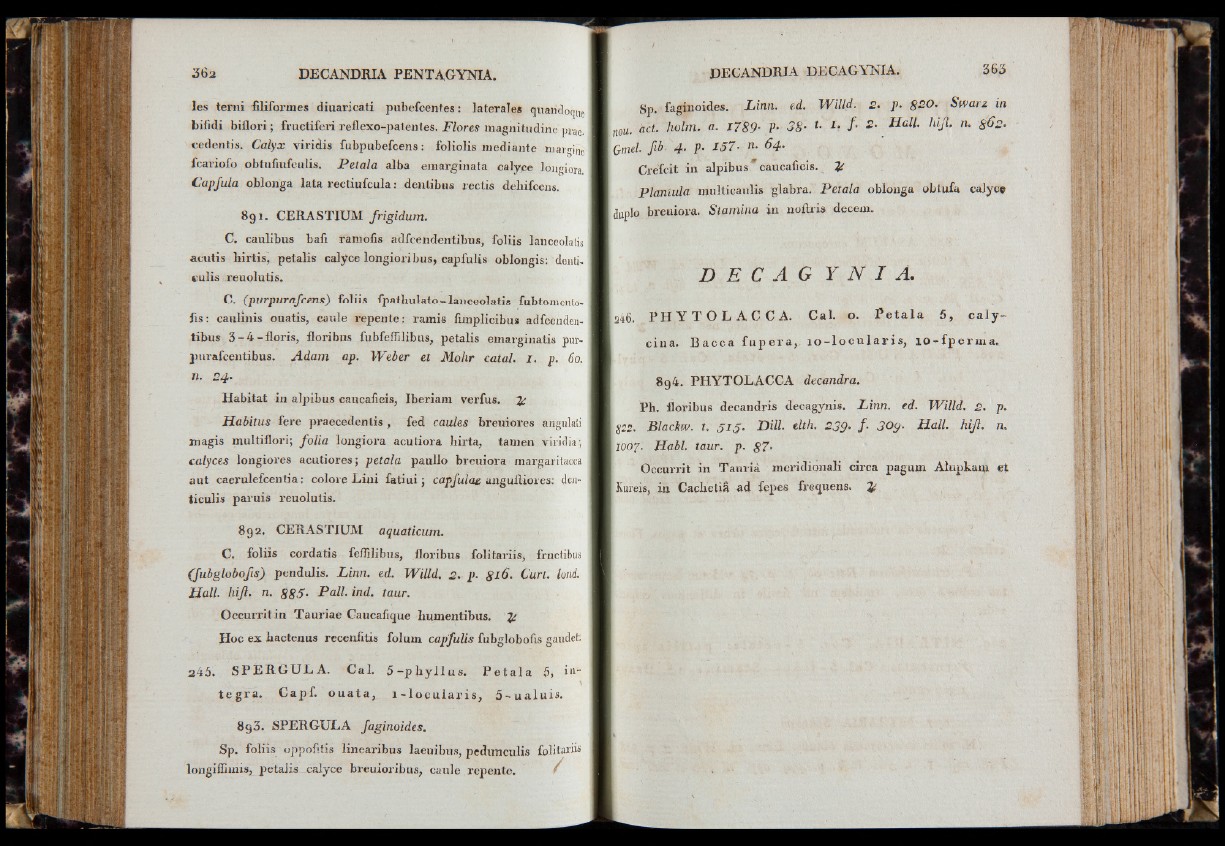 362 DECANDRIA PENTAGYNIA.
les terni filiformes diuaricati pubefcentes: laterales quandoque
bifidi biflori; fructiferi reflexo-patentes. Flores magnitudine prae-
cedentis. Calyx viridis fubpubefcens: foliolis mediante margine
fcariofo obtufiufculis. Petala alba emarginata calyce longiora.
Capfula oblonga lata rectiufcula: dentibus rectis dehifcens.
891. CERASTIUM frigidum.
C. caulibus bafi ramofis adfcendentibus, foliis lanceolatis
acutis hirtis, petalis calyce longioribus, capfulis oblongis: denti-
culis reuolutis.
C. (purpurafcens) foliis fpathulato-lanceolatis fubtomento-
fis: caulinis ouatis, caule repente: ramis fimplicibus adfcenden-
tibus 3-4-floris, floribus fubfeffilibus, petalis emarginatis pur-
purafcentibus. Adam ap. Weber et Mohr catal. 1. p. 60.
n. 24.
Habitat in alpibus caucaficis, Iberiam verfus. ♃
Habitus fere praecedentis, fed caules breuiores angulati
magis multiflori; folia longiora acutiora hirta, tamen viridia;
calyces longiores acutiores; petala paullo breuiora margaritacea
aut caerulefcentia: colore Lini fatiui; capfulae anguftiores: den-
ticulis paruis reuolutis.
892. CERASTIUM aquaticum.
C. foliis cordatis feffilibus, floribus folitariis, fructibus
(fubglobofis) pendulis. Linn. ed. Willd. 2. p. 816. Curt. lond.
Hall. hift. n. 885. Pall. ind. taur.
Occurrit in Tauriae Caucafique humentibus. ♃
Hoc ex hactenus recenfitis folum capfulis fubglobofis gaudet.
245. SPERGULA. Cal. 5-phyllus. Petala 5, in-
tegra. Capf. ouata, 1-locularis, 5-ualuis.
893. SPERGULA faginoides.
Sp. foliis oppofitis linearibus laeuibus, pedunculis folitariis
longiffimis, petalis calyce breuioribus, caule repente.
DECANDRIA DECAGYNIA. 363
Sp. faginoides. Linn. ed. Willd. 2. p. 820. Swarz in
nou. act. holm. a. 1789. p. 38. t. 1. f. 2. Hall. hift. n. 862.
Gmel. fib. 4. p. 157. n. 64.
Crefcit in alpibus caucaficis. ♃
Plantula multicaulis glabra. Petala oblonga obtufa calyce
duplo breuiora. Stamina in noftris decem.
DECAGYNIA.
246. PHYTOLACCA. Cal. o. Petala 5, caly-
cina. Bacca fupera, 10-locularis, 10-fperma.
894. PHYTOLACCA decandra.
Ph. floribus decandris decagynis. Linn. ed. Willd. 2. p.
822. Blackw. t. 515. Dill. elth. 239. f. 309. Hall. hift. n.
1007. Habl. taur. p. 87.
Occurrit in Tauriâ meridionali circa pagum Alupkam et
Kureis, in Cachetiâ ad fepes frequens. ♃